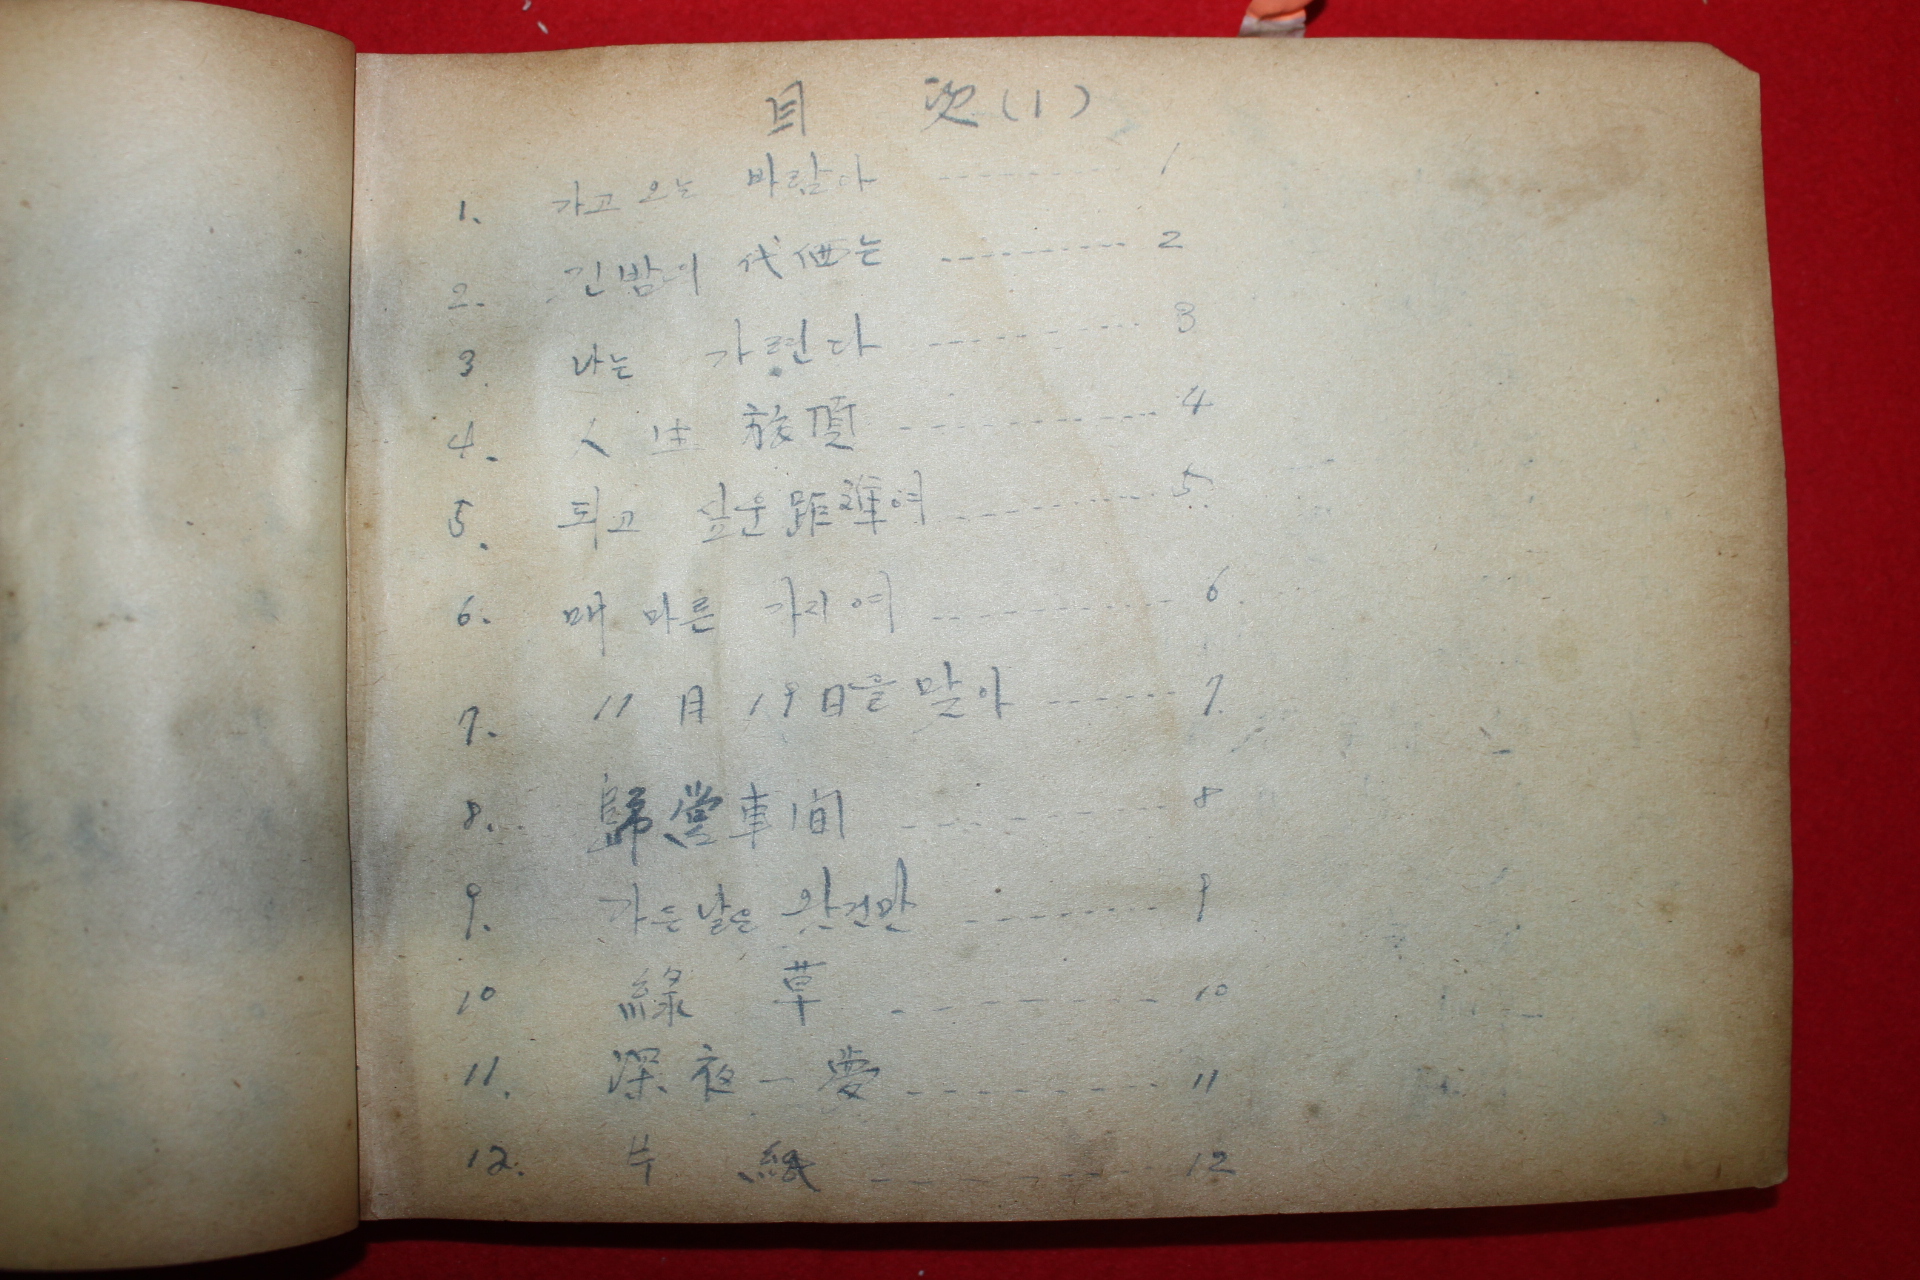 目 次 (1)
1. 가고 오는 바람아 ------- 1
2. 긴밤의 代価는 ------- 2
3. 나는 가련다 ------- 3
4. 人生 放頂 ------- 4
5. 퇴고 싶운 距離여 ------- 5
6. 매 마른 가지여 ------- 6
7. 11月 19日을 맞아 ------- 7
8. 歸堂車間 ------- 8
9. 가는날은 왔건만 ------- 9
10 綠 草 ------- 10
11. 深夜一夢 ------- 11
12. 紙 ------- 12